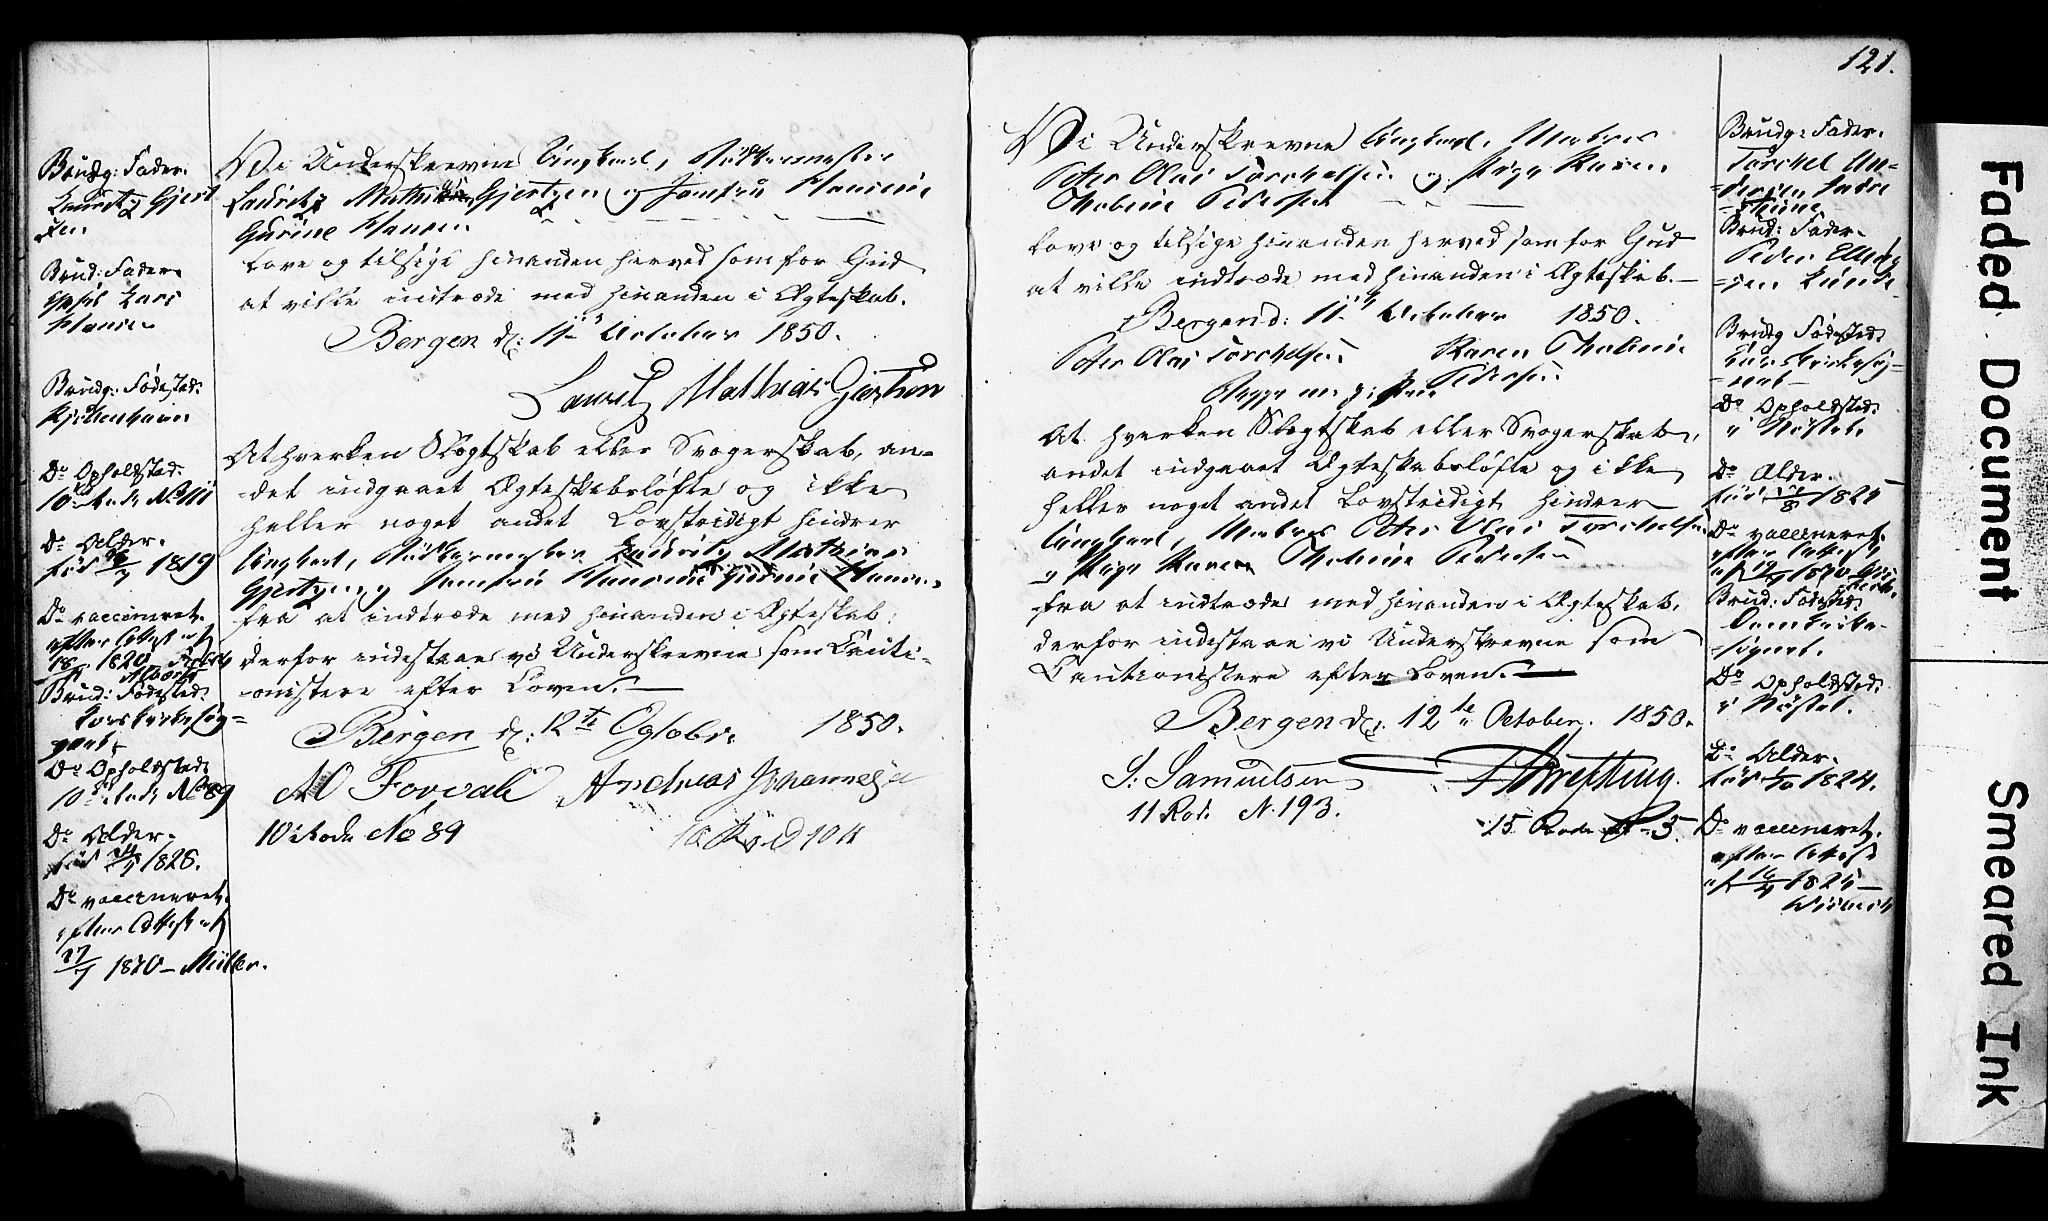 Brudg: Fader.
Lauritz Gjert
zen
Brud: Fader
Lars
Hansen
Brudg: Fødested:
Kjøbenhavn
Do Opholdsted:
10de Rode No
Do Alder.
født 1819
Do vaccineret.
efter Attest af
18 1820
Brud: Fødested:
Korskirkesog=
net
Do Opholdsted
10de Rode No 89
Do Alder.
født 1826.
Do vaccineret.
efter Attest af
27/7 1830 – Müller.
Vi Underskrevne Ungkarl,
Lauritz Mathias Gjertzen og Jomfru Hansine
Gurine Hansen
Love og tilsige hinanden herved som for Gud
at ville indtræde med hinanden i Ægteskab.
Bergen d: 11 October 1850.
Lauritz Mathias Gjertzen
At hverken Slægtskab eller Svogerskab, an=
det indgaaet Ægteskabsløfte og ikke
heller noget andet Lovstridigt hindrer
Ungkarl, Lauritz Mathias
Gjertzen og Jomfru Hansine Gurine Hansen
fra at indtræde med hinanden i Ægteskab:
derfor indestaae vi Underskrevne som Cauti=
onistere efter Loven. —
Bergen d: 12te Octobr. 1850.
Andreas Johannesen
10de Rode No 89
104
121.
Vi Underskrevne Ungkarl, Matros
Peter Olai Torchelsen og Pige Karen
Thobine Pedersen
Love og tilsige hinanden herved som for Gud
at ville indtræde med hinanden i Ægteskab. —
Bergen d: 11 October 1850.
Peter Olai Torchelsen Karen Thobine
Pedersen
At hverken Slægtskab eller Svogerskab,
andet indgaaet Ægteskabsløfte og ikke
heller noget andet Lovstridigt hindrer
Ungkarl, Matros Peter Olai Torchelsen
og Pige Karen Thobine Pedersen
fra at indtræde med hinanden i Ægteskab,
derfor indestaae vi Underskrevne som
Cautionistere efter Loven. —
Bergen d: 12te October. 1850.
S: Samuelsen
11 Rode N. 193.
15 Rode 5.
Brudg: Fader.
Torchel An=
dersen
Brud: Fader
Peder
Brudg Fødested
Do Opholdsted:
i Nøstet.
Do Alder.
født 1825
Do vaccineret.
efter Attest
af
Brud: Fødested
Domkirke=
sognet.
Do Opholdsted:
i Nøstet.
Do Alder.
født 1824.
Do vaccineret.
efter Attest
af 1825 —
Faded Document
Smeared Ink